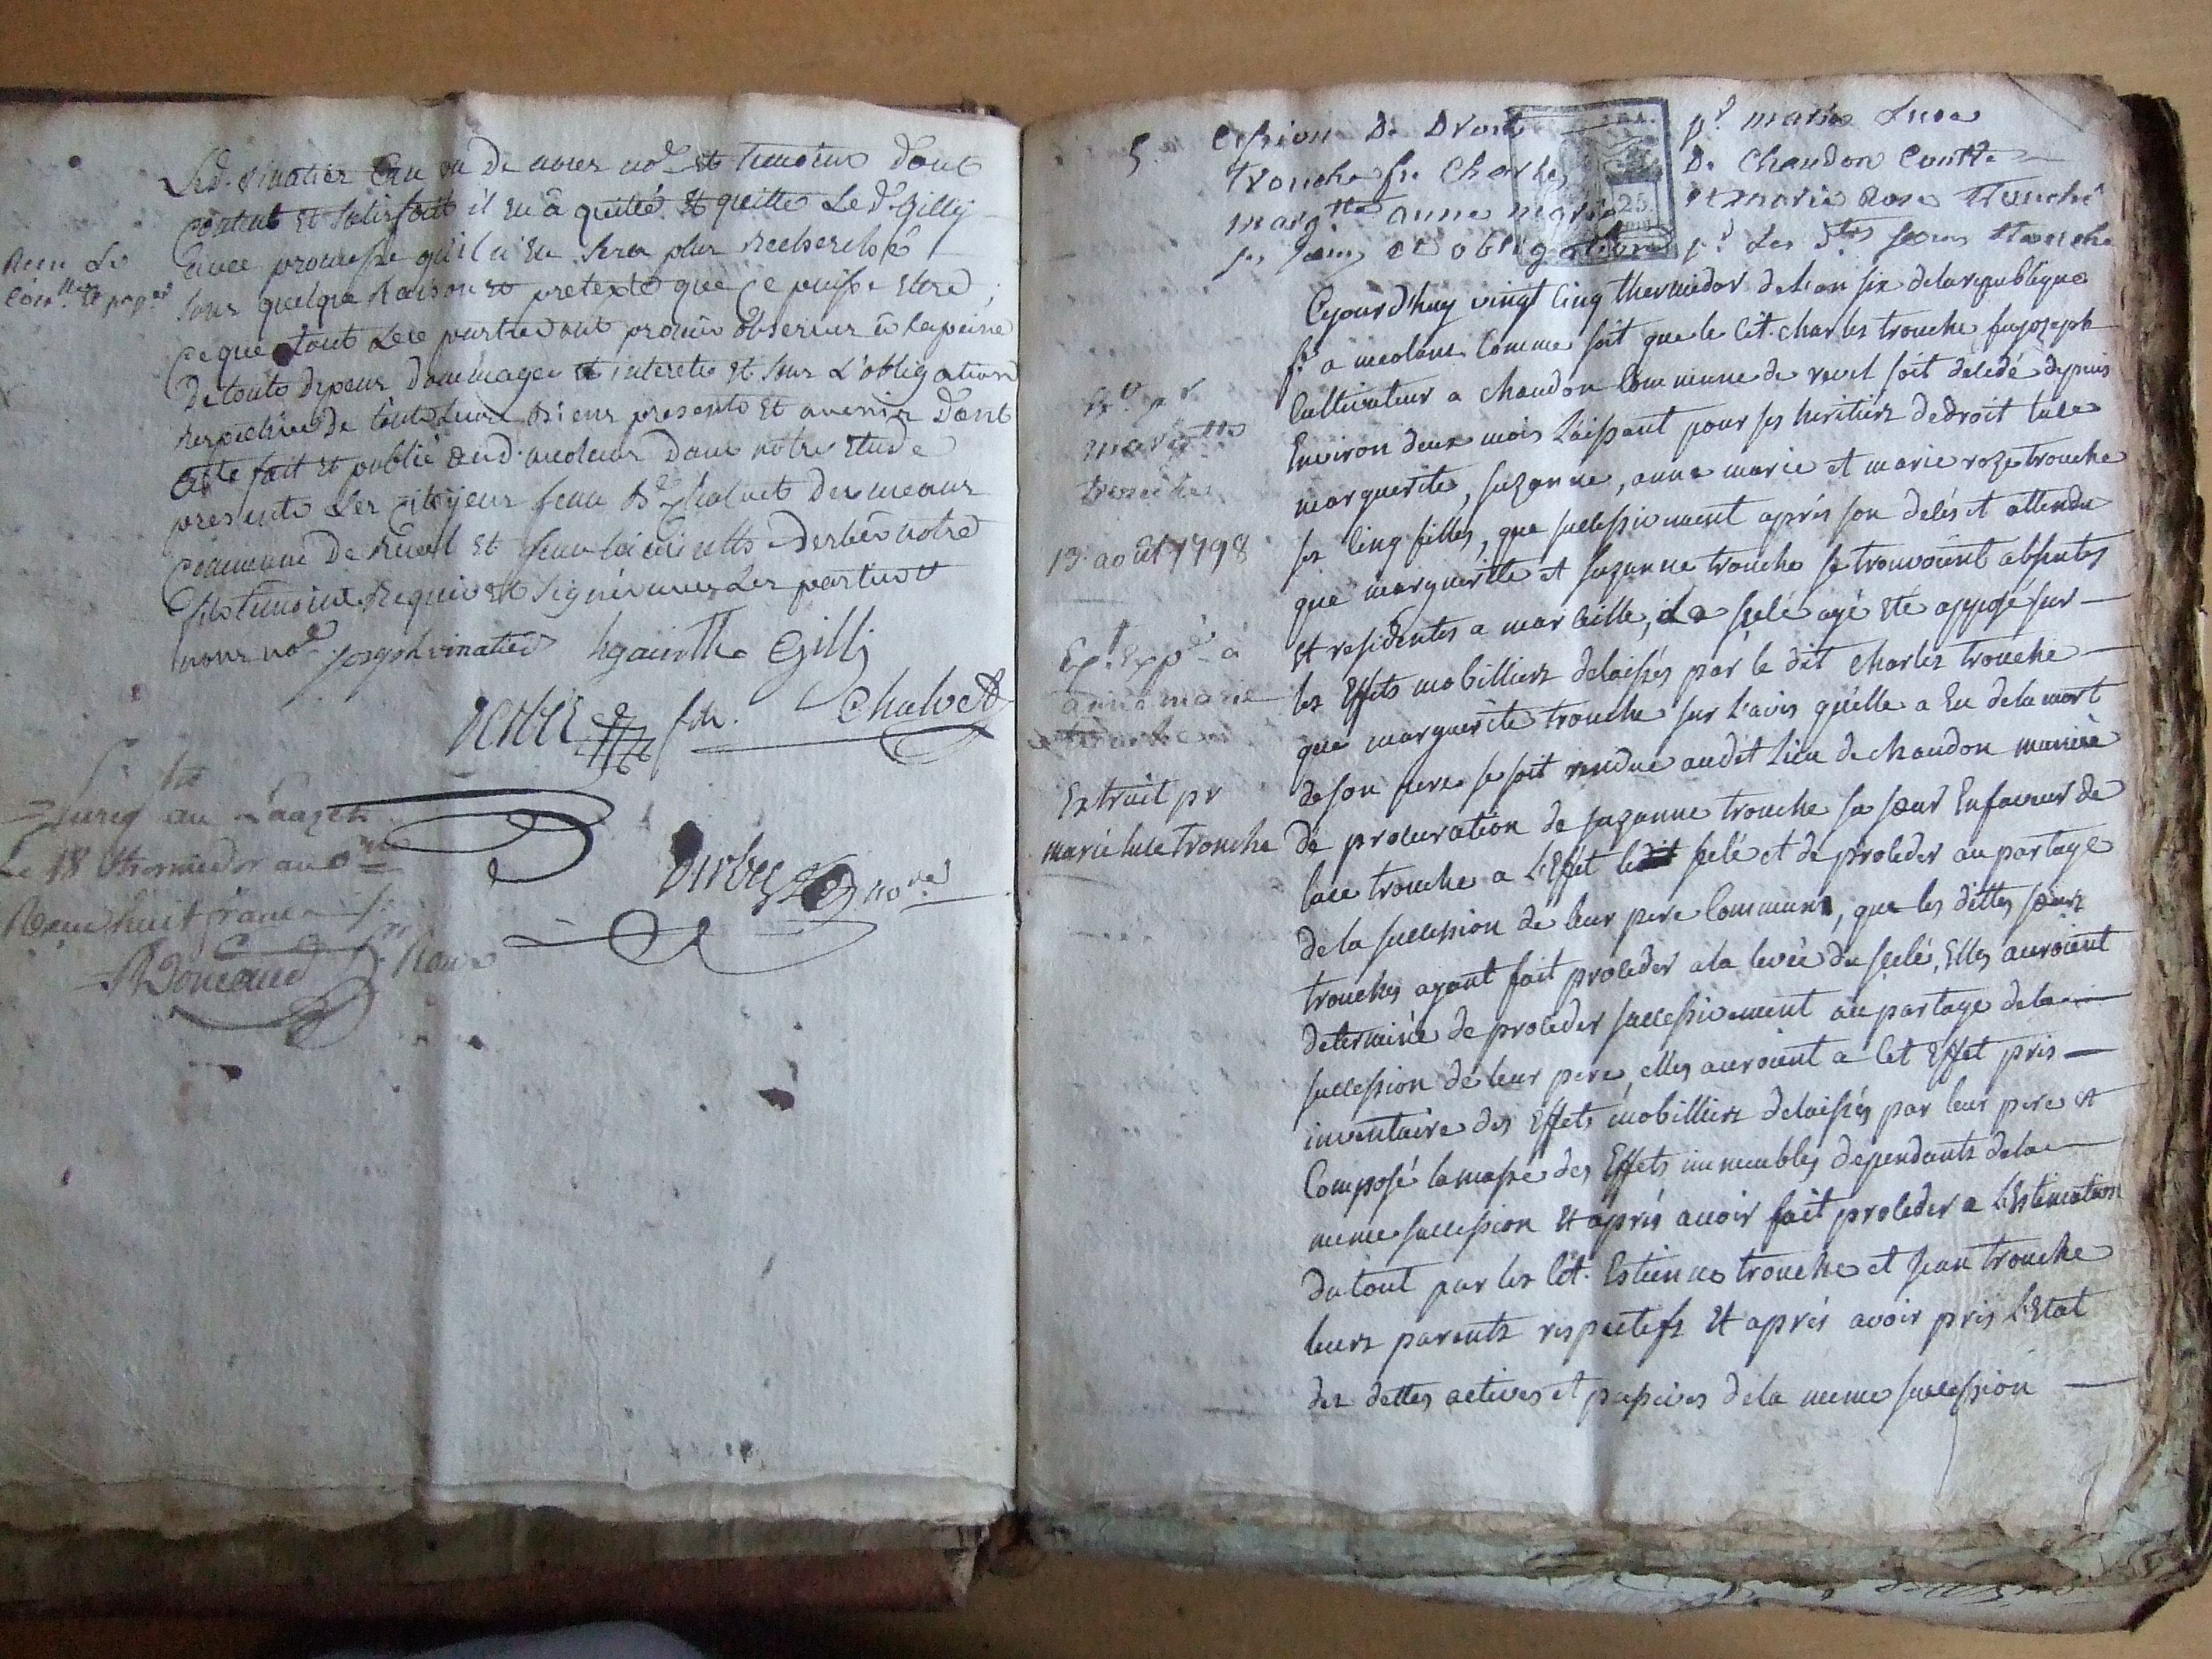 Led. vinatier au vu de nous no.re et temoins dont
content et satisfait il en a quitté et quitte Le d. Gilly
avec promesse qu'il n'en sera plus recherché
sous quelque raison et pretexte que ce puisse etre,
ce que tout les parties ont promis observer à la peine
De touts depens dommages et interets et sous L'obligation
respective de touts leurs biens presents et avenir Dont
acte fait et publié aud. meolans Dans notre etude
presents Les Citoyens Jean B.te Chalvet des means
Commune de Revel et Derbés notre
fils temoins requis et signés avec Les parties et
nous no.re
joseph vinatier hyacinthe Gilli
Derbés fils. Chalvet
Derbes no.re
Enreg au Lauzet
Le 18 thermidor an 6
Recu huit francs
5. Cession De Droit
trouche feu Charles
marg.tte anne marie
et obligation
p.r marie Luce
De Chaudon Contte
et marie Rose Trouche
p.r Les d.tes soeurs trouche
Cejourd'huy vingt cinq thermidor de l'an six de la republique
fr.se a meolans Comme soit que le Cit. charles trouche feu joseph
Cultivateur a chaudon Commune de revel soit decedé depuis
Environ deux mois Laissant pour ses heritiers de droit luce
marguerite, suzanne, anne marie et marie roze trouche
ses Cinq filles, que successivement aprés son decés et attendu
que marguerite et suzanne trouche se trouvoient absentes
Et residentes a marseille, Le scelé aye eté apposé sur
les Effets mobilliers delaissés par le dit charles trouche
que marguerite trouche sur l'avis qu'elle a Eu de la mort
de son pere se soit rendue audit Lieu de chaudon munie
de procuration de suzanne trouche sa soeur En faveur de
luce trouche a L'Effet scelé et de proceder au partage
de la succession de leur pere Commun, que les dittes soeurs
trouches ayant fait proceder a la levée du scelé, Elles auroient
determiné de proceder successivement au partage de la
succession de leur pere, elles auroient a Cet Effet pris
inventaire des Effets mobilliers delaissés par leur pere et
Composé la masse des Effets immeubles dependants de la
meme succession Et aprés avoir fait proceder a L'Estimation
du tout par les Cit. Estienne trouche et jean trouche
leurs parents respectifs Et aprés avoir pris L'Etat
des dettes actives et passives de la meme succession
marg.tte
trouche
13. août 1798
Ex.t Exp.é à
anne marie
trouche
Extrait pr
marie luce trouche